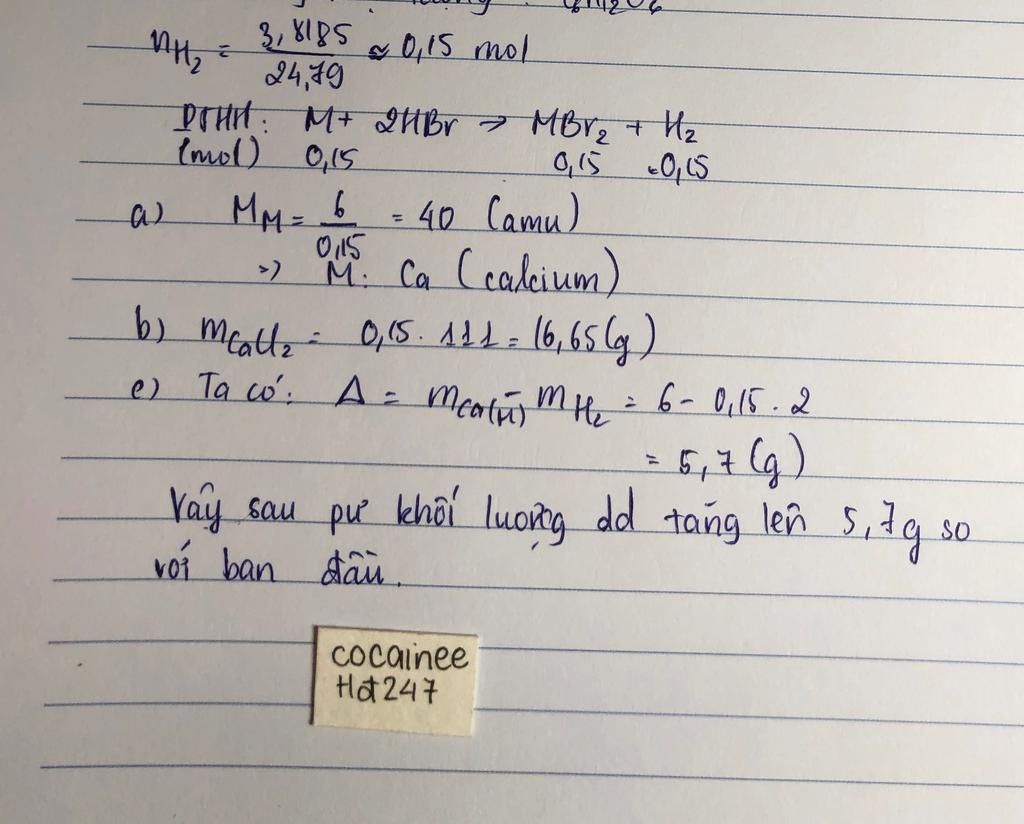 nH₂ = 3,8185 / 24,79 ≈ 0,15 mol
PTHH: M + 2HBr → MBr₂ + H₂
(mol) 0,15 0,15 0,15
a) M_M = 6 / 0,15 = 40 (amu)
=> M: Ca (calcium)
b) mCaCl₂ = 0,15 . 111 = 16,65 (g)
c) Ta có: Δ = mCa(M) - mH₂ = 6 - 0,15 . 2
= 5,7 (g)
Vậy sau pư khối lượng dd tăng lên 5,7g so
với ban đầu.
cocainee
Hot247